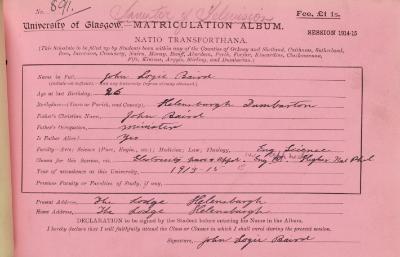 No. 891.
Fee, £1 1s.
University of Glasgow. MATRICULATION ALBUM.
SESSION 1914-15
NATIO TRANSFORTHANA.
(This Schedule is to be filled up by Students born within any of the Counties of Orkney and Shetland, Caithness, Sutherland,
Ross, Inverness, Cromarty, Nairn, Moray, Banff, Aberdeen, Perth, Forfar, Kincardine, Clackmannan,
Fife, Kinross, Argyle, Stirling, and Dumbarton.)
Name in Full, John Logie Baird
Age at last Birthday, 26
Birthplace—(Town or Parish, and County), Helensburgh Dumbarton
Father's Christian Name, John Baird
Father's Occupation, minister
Is Father Alive? Yes
Faculty—Arts; Science (Pure, Engin., etc.); Medicine; Law; Theology, Eng Science
Classes for this Session, viz. Higher Nat Phil
Year of attendance at this University, 1913-15
Previous Faculty or Faculties of Study, if any,
Present Address, The Lodge Helensburgh
Home Address, The Lodge Helensburgh
DECLARATION to be signed by the Student before entering his Name in the Album.
I hereby declare that I will faithfully attend the Class or Classes in which I shall enrol during the present session.
Signature, John Logie Baird